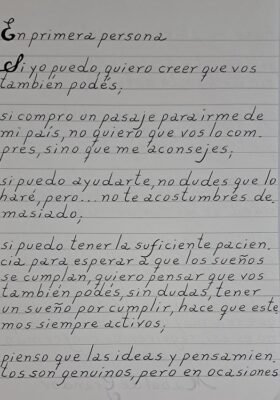 En primera persona
Si yo puedo, quiero creer que vos
también podés;
si compro un pasaje para irme de
mi país, no quiero que vos lo com-
pres, sino que me aconsejes;
si puedo ayudarte, no dudes que lo
haré, pero... no te acostumbres de-
masiado;
si puedo tener la suficiente pacien-
cia para esperar a que los sueños
se cumplan, quiero pensar que vos
también podés, sin dudas, tener
un sueño por cumplir, hace que este-
mos siempre activos;
pienso que las ideas y pensamien-
tos son genuinos, pero en ocasiones